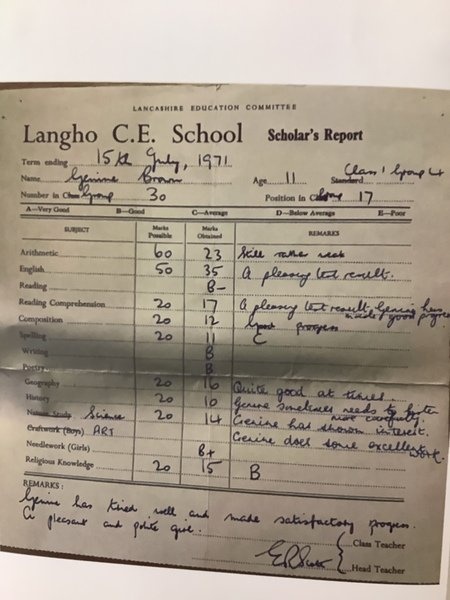 LANCASHIRE EDUCATION COMMITTEE
Langho C.E. School Scholar's Report
Term ending 15th July, 1971
Name Genine Brown Age 11 Standard Class 1 Group 4
Number in Class Group 30 Position in Class Group 17
A—Very Good B—Good C—Average D—Below Average E—Poor
SUBJECT Marks Possible Marks Obtained REMARKS
Arithmetic 60 23 Still rather weak
English 50 35 A pleasing test result.
Reading B-
Reading Comprehension 20 17 A pleasing test result. Genine has made good progress
Composition 20 12 Good progress
Spelling 20 11 C
Writing B
Poetry B
Geography 20 16 Quite good at times
History 20 10 Genine sometimes needs to listen more carefully.
Nature Study Science 20 14 Genine has shown interest.
Craftwork (Boys) ART Genine does some excellent work.
Needlework (Girls) B+
Religious Knowledge 20 15 B
REMARKS:
Genine has tried well and made satisfactory progress.
A pleasant and polite girl.
Class Teacher
Head Teacher